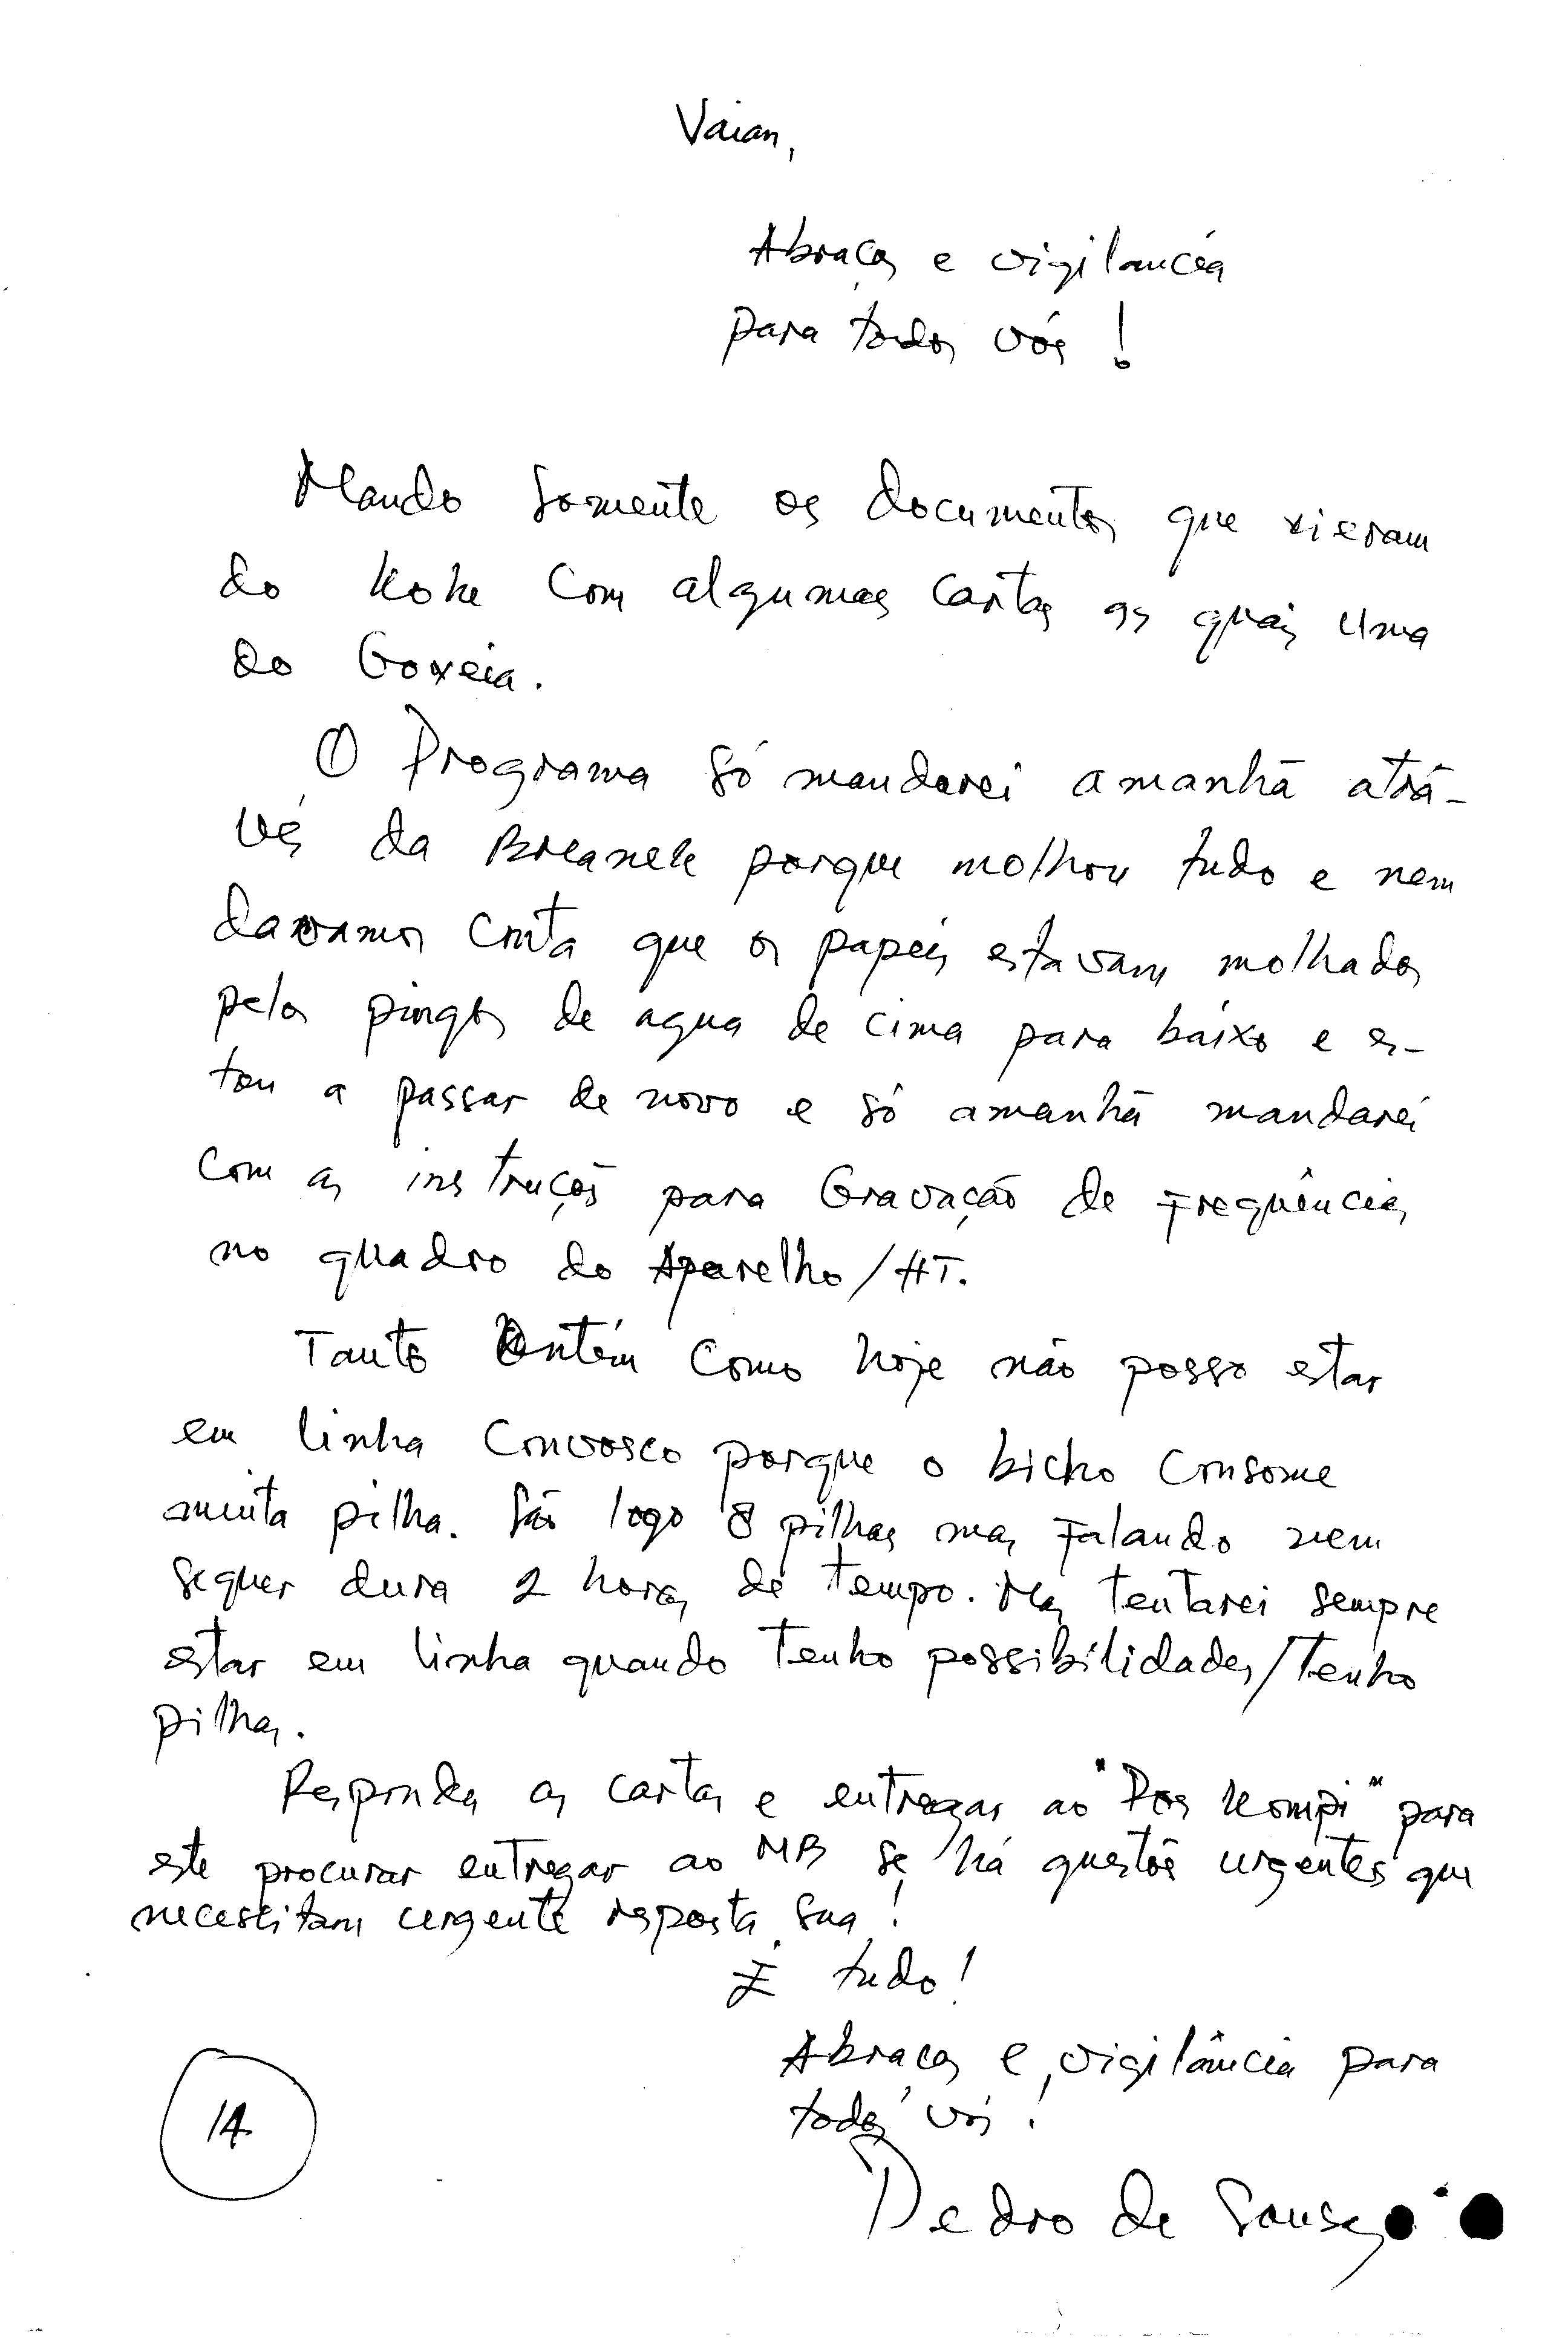 Vaian,
Abraços e vigilância
para todos vós !
Mando somente os documentos que vieram
do Koke com algumas cartas as quais uma
do Goxeia.
O Programa só mandarei amanhã atrá-
vés da porque molhou tudo e nem
davamos conta que os papeis estavam molhados
pelos pingos de agua de cima para baixo e es-
tou a passar de novo e só amanhã mandarei
com as instruções para Gravação de Frequências
no quadro do Aparelho/HT.
Tanto Ontém como hoje não posso estar
em linha convosco porque o bicho consome
muita pilha. São logo 8 pilhas mas Falando nem
sequer dura 2 horas de tempo. Mas tentarei sempre
estar em linha quando tenho possibilidades/tenho
pilhas.
Responda as cartas e entregar ao "Pos Kompi" para
este procurar entregar ao MB se há questões urgentes que
necessitam urgente resposta sua !
É tudo !
Abraços e vigilância para
todos vós !
14
Pedro de Sousa